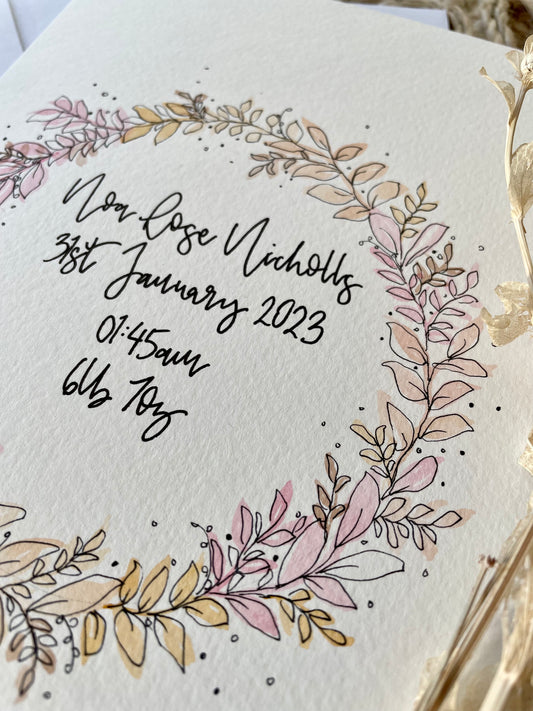 Noa Rose Nicholls
31st January 2023
01:45am
6lb 7oz